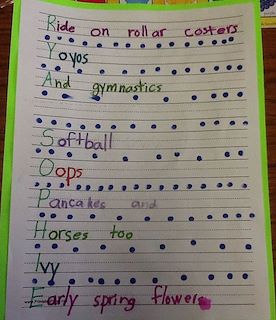 Ride on rollar costers
Yoyos
And gymnastics
Softball
Oops
Pancakes and
Horses too
Ivy
Early spring flowers